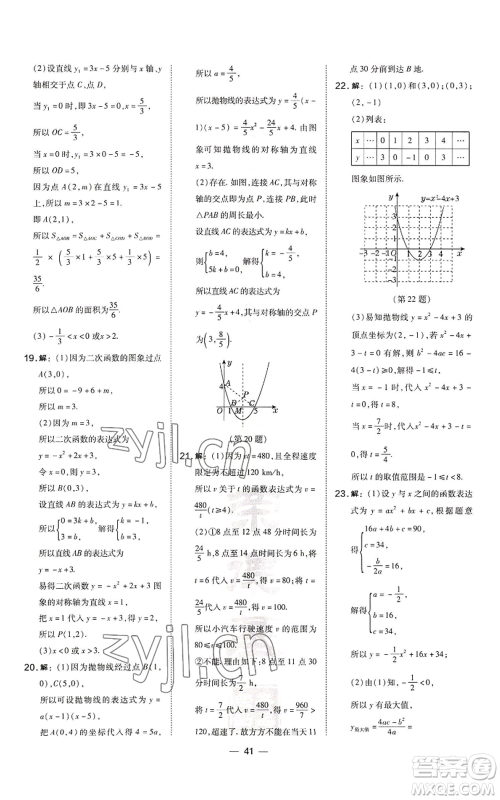 (2)设直线 y₁=3x-5 与 x 轴,y
轴分别相交于点 C,点 D,
当 y=0 时,x=5/3,
所以 OC=5/3;
当 x=0 时,y=-5,
所以 OD=5,
因为点 A(2,m)在直线上,
所以 m=3×2-5=1,
即 A(2,1),
所以 S△AOB=S△AOC+S△COD+S△BOD=
35/6.
所以△AOB 的面积为35/6.
(3)-1/3<x<0 或 x>2.
19.解:(1)因为二次函数的图象过点
A(3,0),
所以 0=-9+6+m,
所以 m=3.
(2)因为 m=3,
所以二次函数的表达式为
y=-x²+2x+3,
令 x=0,则 y=3,
所以 B(0,3),
设直线 AB 的表达式为 y=kx+b,
所以{0=3k+b, 3=b, 解得{k=-1, b=3,
所以直线 AB 的表达式为
y=-x+3.
易得二次函数 y=-x²+2x+3
图象的对称轴为直线 x=1,
把 x=1 代入 y=-x+3,得 y=2,
所以 P(1,2).
20.解:(1)因为抛物线经过点 B(1,
0),C(5,0),
所以可设抛物线的表达式为 y=
a(x-1)(x-5),
把 A(0,4)的坐标代入得 5a=4,
所以 a=4/5,
所以抛物线的表达式为 y=4/5(x-
1)(x-5)=4/5x²-24/5x+4. 由图
象可知抛物线的对称轴为直线
x=3.
(2)存在. 如图,连接 AC 交对称
轴于点 P,连接 PB,此时
△PAB 的周长最小.
设直线 AC 的表达式为 y=kx+b,
则{b=4, 5k+b=0, 解得{k=-4/5, b=4,
所以直线 AC 的表达式为
y=-4/5x+4,当 x=3 时,y=8/5,
所以 P(3,8/5).
(第 20 题)
21.解:(1)因为 vt=480,且全程速度
限定为不超过 120 km/h,
所以 v 关于 t 的函数表达式为 v=
480/t(t≥4).
(2)①8 点至 12 点 48 分时间长为
24/5 h,8 点至 14 点时间长为 6 h.
将 t=6 代入 v=480/t,得 v=80;将
t=24/5代入 v=480/t,得 v=100,
所以小汽车行驶速度 v 的范围为
80≤v≤100.
②不能,理由如下:8 点至 11 点 30
分时间长为7/2 h,
将 t=7/2代入 v=480/t,得 v=960/7>
120,超速了. 故方方不能在当天 11
点 30 分前到达 B 地.
22.解:(1)(1,0)和(3,0);(0,3);
(2,-1)
(2)列表:
x … 0 1 2 3 4 …
y … 3 0 -1 0 3 …
图象如图所示.
y=x²-4x+3
(第 22 题)
(3)易知抛物线 y=x²-4x+3 的
顶点坐标为(2,-1),
因为关于 x 的一元二次方程 x²-
4x+3-t=0(t 为实数)在-1<x<
7/2的范围内有解,所以-1≤t,
当 x=-1 时,代入 y=x²-4x+3,
得 t=8,
所以 t 的取值范围是-1≤t<8.
23.解:(1)设 y 与 x 之间的函数表达
式为 y=ax²+bx+c,根据题意得
{16a+4b+c=16, c=0, -b/2a=16,
解得{a=-1/2, c=16,
(2)因为 a=-1/2<0,
所以 y 有最大值,
y最大值=4ac-b²/4a=
41
zyjl.cn